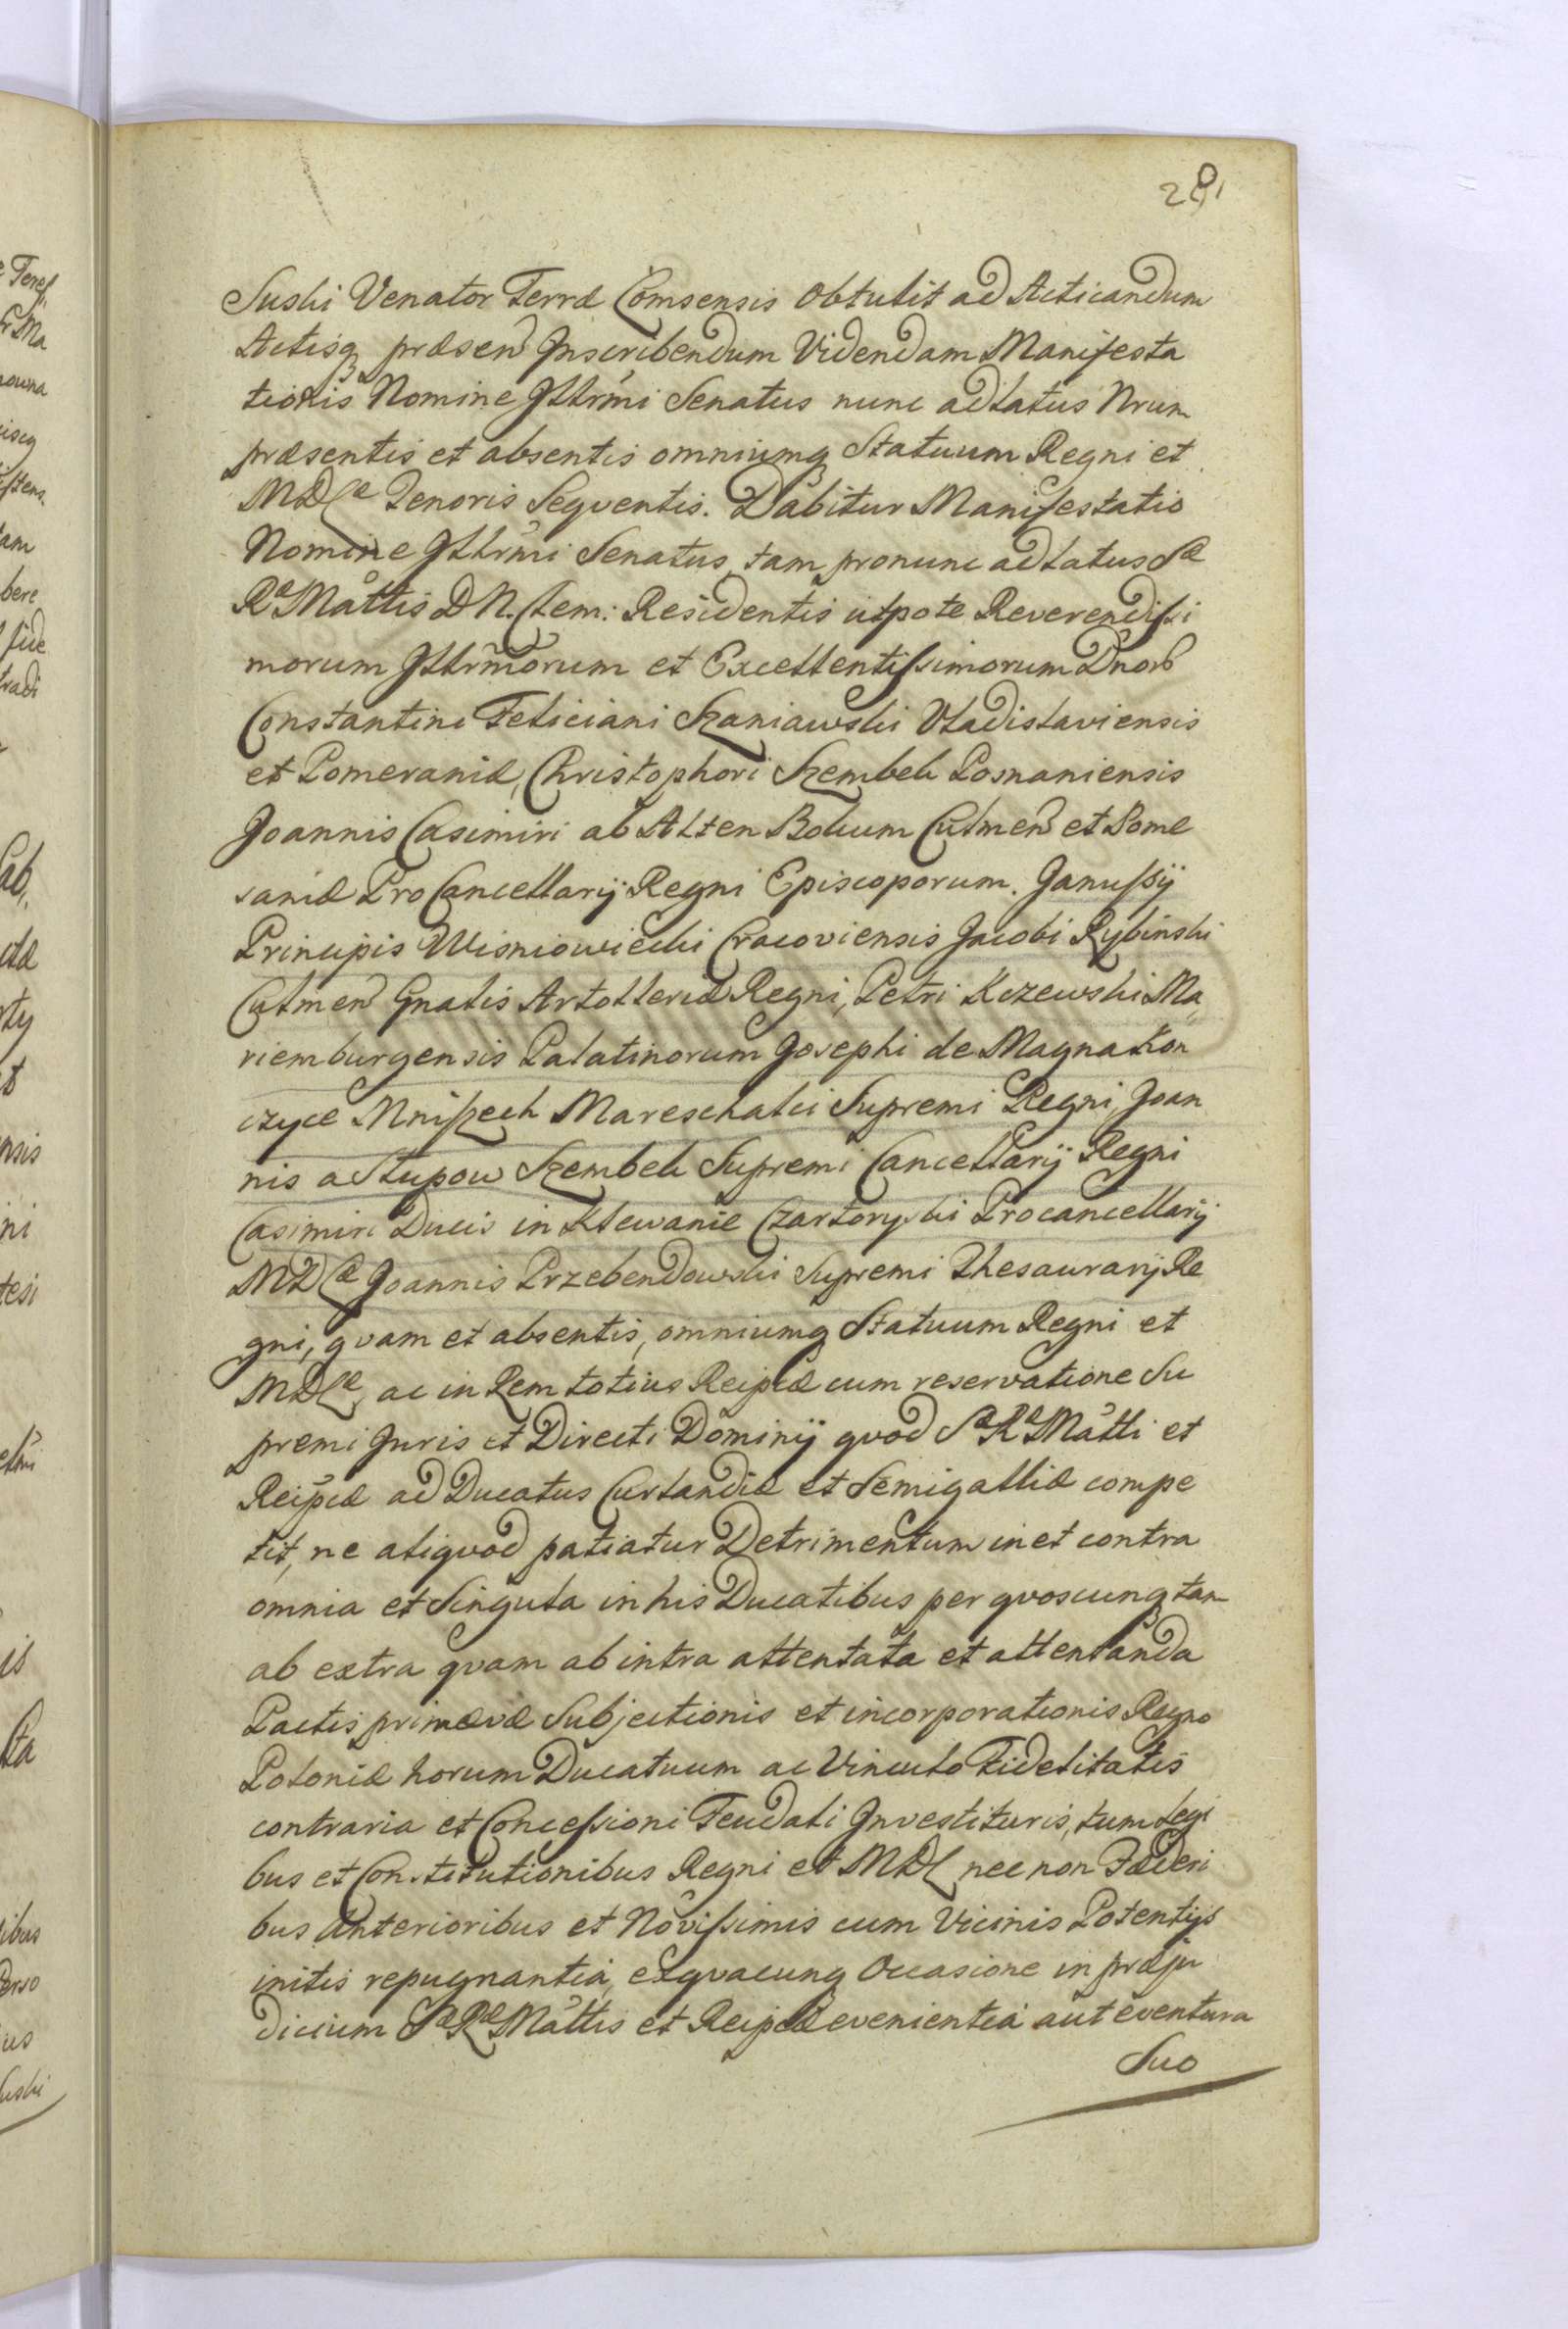 281
Suski Venator Terræ Lomsensis Obtulit ad Acticandum
Actisq præsen Inscribendum Videndam Manifesta
tionis Nomine Illrmi Senatus nunc ad latus Nrum
præsentis et absentis omniumq Statuum Regni et
MDLæ Tenoris Seqventis. Dabitur Manifestatio
Nomine Illrmi Senatus, tam pronunc ad latus Sæ
Ræ Mattis D N. Clem: Residentis utpote Reverendissi
morum Illrmorum et Excellentissimorum Dnorb
Constantini Feliciani Szaniawski Vladislaviensis
et Pomeraniæ, Christophori Szembek Posnaniensis
Joannis Casimiri ab Alten Bokum Culmen et Pome
saniæ ProCancellarij Regni Episcoporum. Janussij
Principis Wisniowiecki Cracoviensis Jacobi Rybinski
Culmen Gnalis Artolleriæ Regni, Petri Kczewski Ma
riemburgensis Palatinorum Josephi de Magna Kon
czyce Mniszech Mareschalci Supremi Regni, Joan
nis a Slupow Szembek Supremi Cancellarij Regni
Casimiri Ducis in Klewanie Czartoryski Procancellarij
MDLæ Joannis Przebendowski Supremi Thesaurarij Re
gni, qvam et absentis, omniumq Statuum Regni et
MDLæ, ac in Rem totius Reipcæ cum reservatione Su
premi Juris et Directi Dominij qvod Sæ Ræ Matti et
Reipcæ ad Ducatus Curlandiæ et Semigalliæ compe
tit, ne aliqvod patiatur Detrimentum in et contra
omnia et Singula in his Ducatibus per qvoscunq tam
ab extra qvam ab intra attentata et attentanda
Pactis primævæ Subjectionis et incorporationis Regno
Poloniæ horum Ducatuum ac Vinculo Fidelitatis
contraria et Concessioni Feudali Investituris, tum Legi
bus et Constitutionibus Regni et MDL nec non Fæderi
bus Anterioribus et Novissimis cum Vicinis Potentijs
initis repugnantia, exqvacunq Occasione in præju
dicium Sæ Ræ Mattis et Reipcæ evenientia aut eventura
Suo